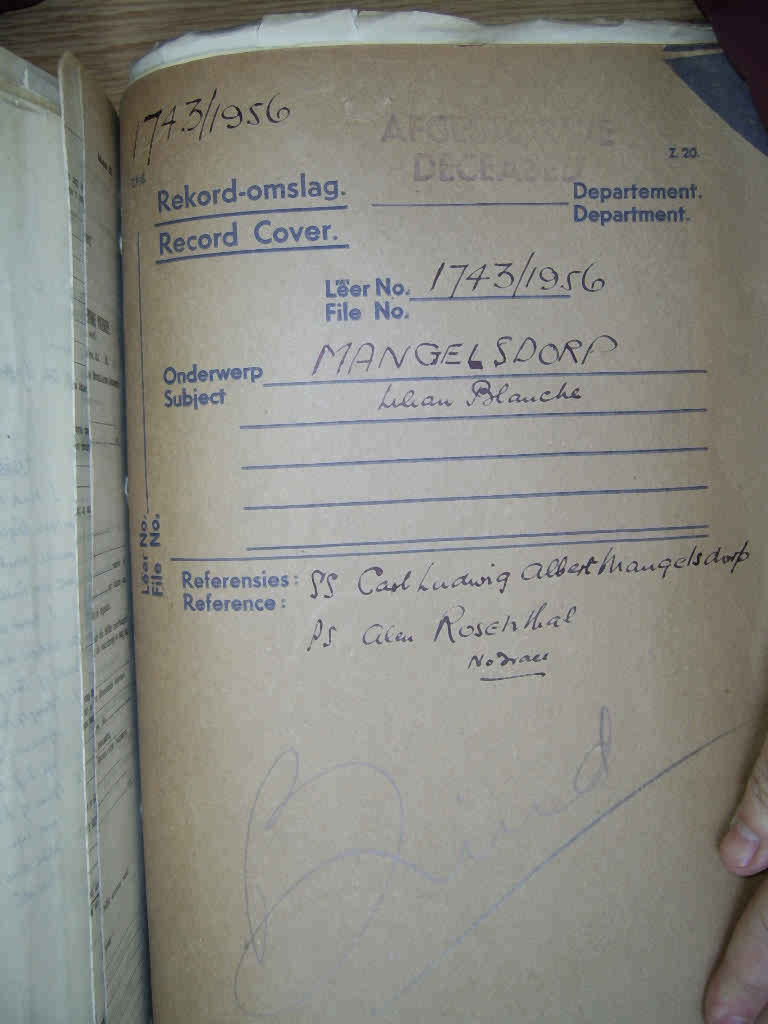 1743/1956
AFGESTORWE
DECEASED
Z. 20.
Rekord-omslag.
Record Cover.
Departement.
Department.
Lêer No. 1743/1956
File No.
Onderwerp MANGELSDORP
Subject Lilian Blanche
Lêer No.
File No.
Referensies: SS Carl Ludwig Albert Mangelsdorp
Reference:
PS Alen Rosenthal
No Trace